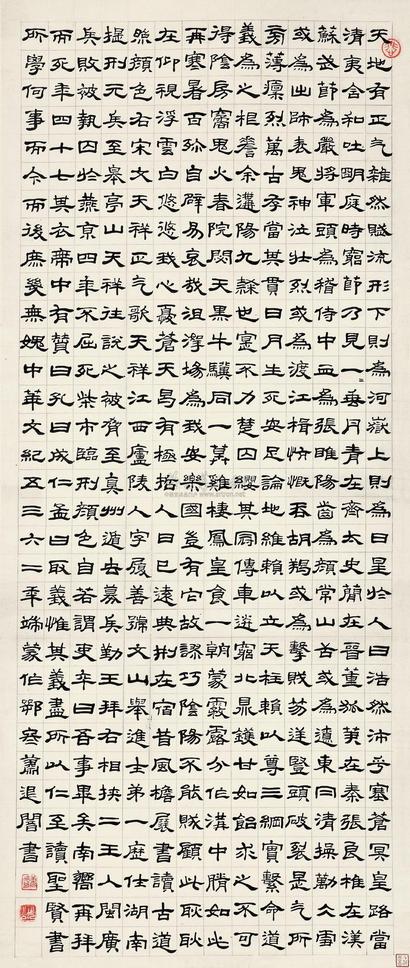 天地有正气雜然賦流形下則為河嶽上則為日星於人曰浩然沛乎塞蒼冥皇路當
清夷含和吐明庭時窮節乃見一一垂丹青在齊太史簡在晉董狐筆在秦張良椎在漢
蘇武節為嚴將軍頭為嵇侍中血為張睢陽齒為顏常山舌或為遼東冃清操勵仌雪
或為出師表鬼神泣壯烈或為渡江楫慷慨吞胡羯或為擊賊笏逆豎頭破裂是气所
旁薄凜烈萬古存當其貫日月生死安足論地維賴以立天柱賴以尊三綱實繫命道
義為之根嗟余遘陽九隸也實不力楚囚纓其冠傳車送窮北鼎鑊甘如飴求之不可
得陰房闃鬼火春院閟天黑牛驥同一皁雞棲鳳皇食一朝蒙霧露分作溝中瘠如此
再寒暑百沴自辟易哀哉沮洳場為我安樂國豈有它故謬巧陰陽不能賊顧此耿耿
在仰視浮雲白悠悠我心憂蒼天曷有極哲人日已遠典刑在宿昔風檐展書讀古道
照顏色右宋文天祥正气歌天祥江西廬陵人字履善號文山舉進士弟一歷仕湖南
提刑元兵至皋亭山天祥往說之被脅至真州遁去募兵勤王拜右相挾二王入閩廣
兵敗被執囚於燕京四年不屈死柴市臨刑顏色自若謂吏卒曰吾事畢矣南嚮再拜
而死年四十七其衣帶中有贊曰孔曰成仁孟曰取義惟其義盡所以仁至讀聖賢書
所學何事而今而後庶幾無媿中華文紀五三六二年端蒙作鄂寒蕭退闇書